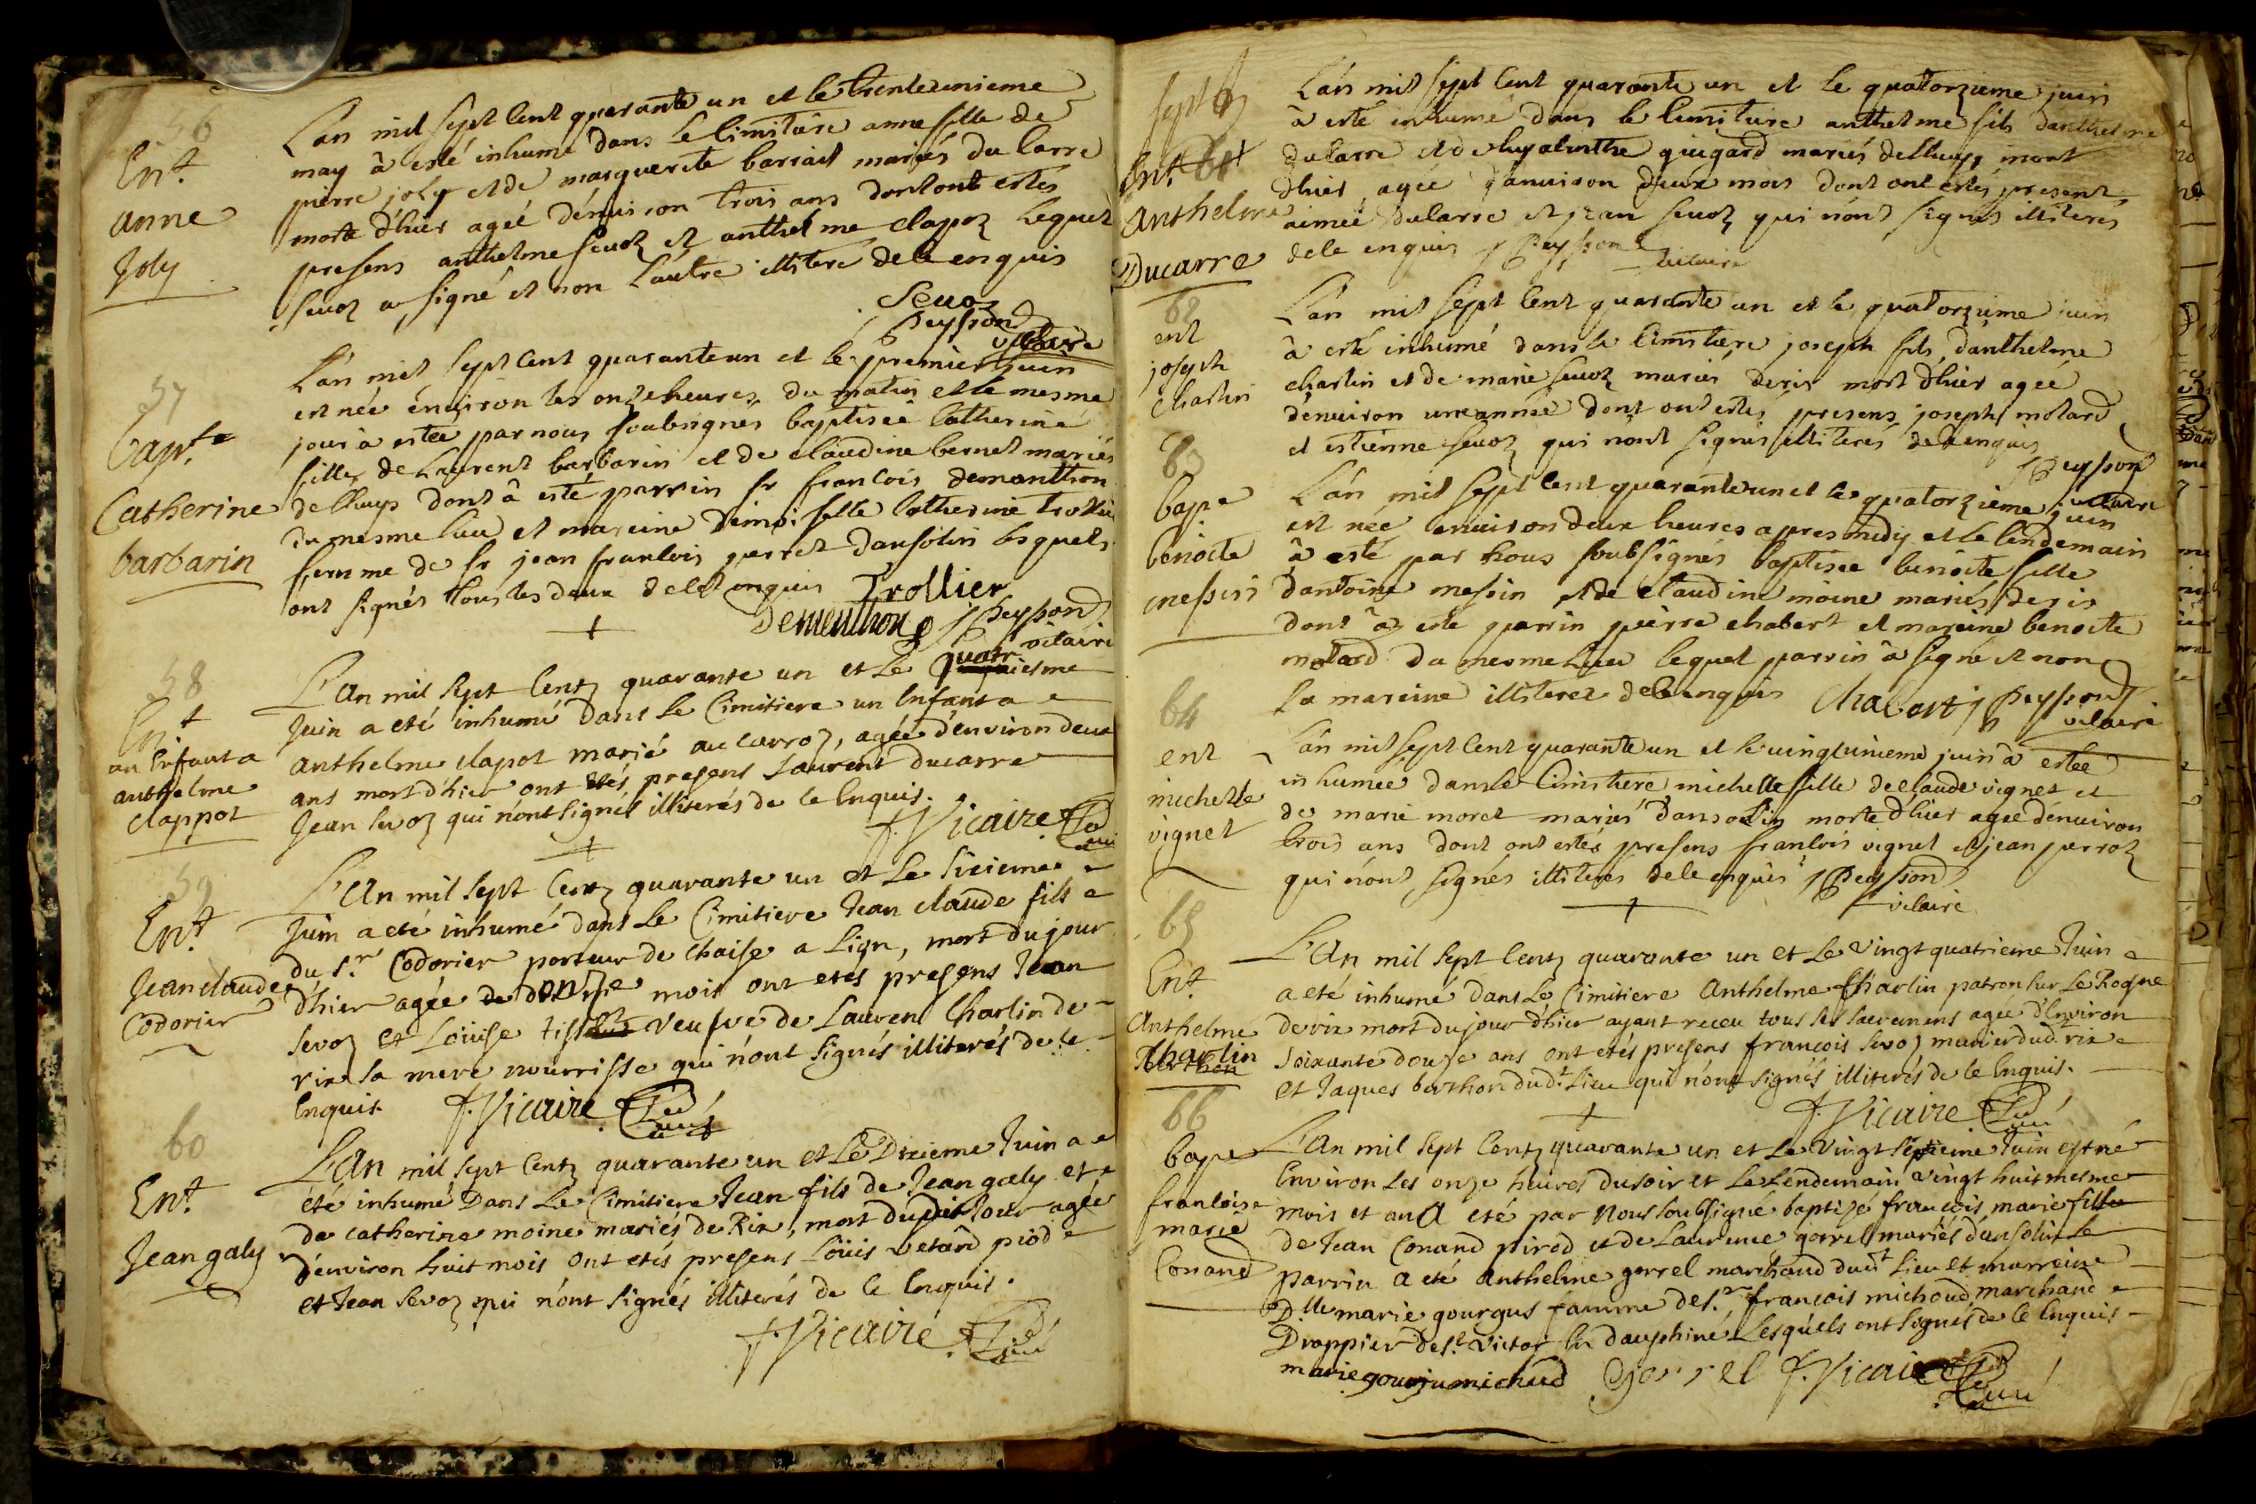 56
Ent.
anne
Joly
L'an mil sept cent quarante un et le trente unieme
may à esté inhumé dans le cimitiere anne fille de
pierre joly et de marguerite mariés du carre
morte d'hier ageé d'enuiron trois ans dont ont estés
presens anthelme seuoz et anthelme clapoz lequel
seuoz a signé et non l'autre illitere de ce enquis
Seuoz
Peysson
vicaire
57
bapt.e
Catherine
barbarin
L'an mil sept cent quarante un et le premier juin
est née enuiron les onze heures du matin et le mesme
jour à estée par nous soubsignés baptisée catherine
fille de Laurent barbarin et de claudine bernet mariés
de lhuys dont à esté parrin sr francois demanthon
du mesme lieu et mareine demoiselle catherine trollier
femme de sr jean francois perret dansolin lesquels
ont signés tous les deux de ce enquis Trollier
Dementhon Peysson
vicaire
58
Ent
un Enfant a
anthelme
clappot
L'An mil sept Centz quarante un et Le quatriesme
Juin a eté inhumé dans Le Cimitiere un Enfant a
anthelme clapot marié au carroz, agée d'environ deux
ans mort d'hier ont etés presens Laurent ducarre
Jean sevoz qui n'ont signés illiterés de ce Enquis.
f. Vicaire
59
Ent
Jean claude
Codorier
L'An mil sept Centz quarante un et Le sixieme
Juin a eté inhumé dans Le Cimitiere Jean claude fils
du s.r Codorier porteur de chaise a Lion, mort du jour
d'hier agée de douze mois ont etés presens Jean
sevoz et Loüise veufve de Laurent Charlin de
rix sa mere nourrisse qui n'ont signés illiterés de ce
Enquis. f. Vicaire
60
Ent
Jean galy
L'An mil sept Centz quarante un et Le Dixieme Juin a
été inhumé Dans Le Cimitiere Jean fils de Jean galy et
de catherine moine mariés de Rix, mort dudit Jour agée
d'environ huit mois ont etés presens Loüis
et Jean sevoz qui n'ont signés illiterés de ce Enquis.
f. Vicaire
Ent
Anthelme
Ducarre
L'an mil sept cent quarante un et le quatorzieme juin
à esté inhumé dans le cimitiere anthelme fils d'anthelme
ducarre et de hyalinthe guigard mariés de lhuys mort
dhier ageé d'anuiron deux mois dont ont estés present
aimée ducarre et jean seuoz qui n'ont signés illiteres
de ce enquis Peysson
vicaire
62
ent
joseph
charlin
L'an mil sept cent quarante un et le quatorzieme juin
à esté inhumé dans le cimitiere joseph fils d'anthelme
charlin et de marie seuoz mariés derix mort d'hier ageé
d'enuiron une année dont ont estés presens joseph motard
et estienne seuoz qui n'ont signés illiterés de ce enquis
Peysson
vicaire
63
bape
benoite
messin
L'an mil sept cent quarante un et le quatorzieme juin
est née enuiron deux heures apres midy et le lendemain
à esté par nous soubsignés baptisée benoite fille
dantoine messin et de claudine moine mariés derix
dont à esté parrin pierre chabert et mareine benoite
motard du mesme lieu lequel parrin à signé et non
la mareine illiteree de ce enquis Chabert Peysson
vicaire
64
ent
michelle
vignet
L'an mil sept cent quarante un et le uingtunieme juin à estée
inhumée dans le cimitiere michelle fille de claude vignet et
de marie moret mariés d'ansolin morte d'hier agée d'enuiron
trois ans dont ont estés presens francois vignet et jean perroz
qui n'ont signés illiterés de ce enquis Peysson
vicaire
65
Ent
Anthelme
Charlin
L'An mil sept Centz quarante un et Le vingt quatrieme Juin
a eté inhumé dans Le Cimitiere Anthelme Charlin patron sur Le Rosne
de rix mort du jour d'hier ayant receu tous les sacremens agée d'Environ
soixante douze ans ont etés presens françois sevoz marinier dud. rix
et Jaques berthon dud.t Lieu qui n'ont signés illiterés de ce Enquis.
f. Vicaire
66
bape
francoise
marie
Conand
L'An mil sept Centz quarante un et Le vingt septieme Juin est né
Environ Les onze heures du soir et Le Lendemain vingt huit mesme
mois et an a eté par nous soubsigné baptisé françois marie fille
de Jean Conand pirod et de Laurence gorrel mariés d'ansolin Le
parrin a eté anthelme gorrel marchand dud.t Lieu et marreine
D.lle marie gourgus famme de s.r françois michoud marchand
Drappier de s.t victor En dauphiné Lesquels ont signés de ce Enquis
marie gourju michud gorrel f. Vicaire